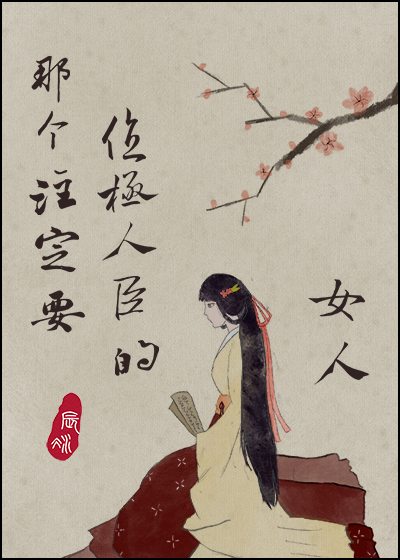 那个注定要
位極人臣的
女人
辰冰